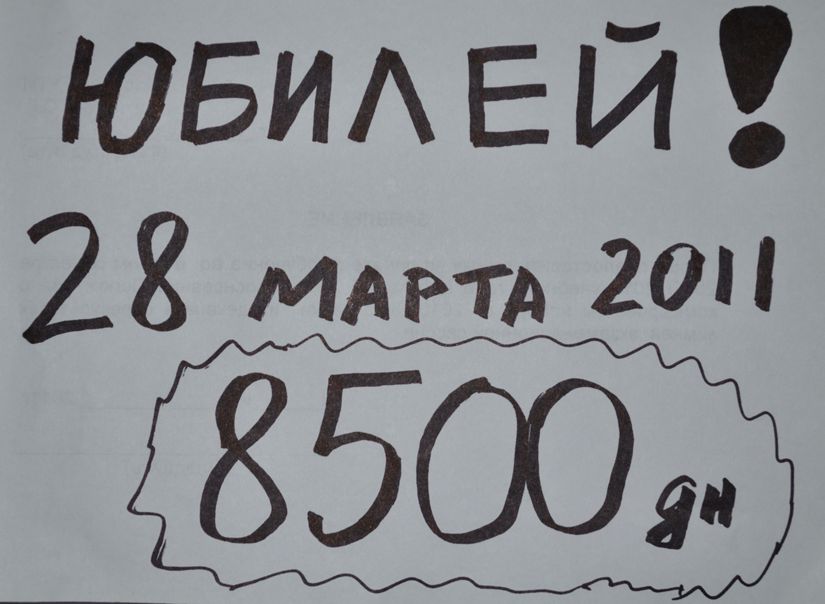 ЮБИЛЕЙ!
28 МАРТА 2011
8500 дн